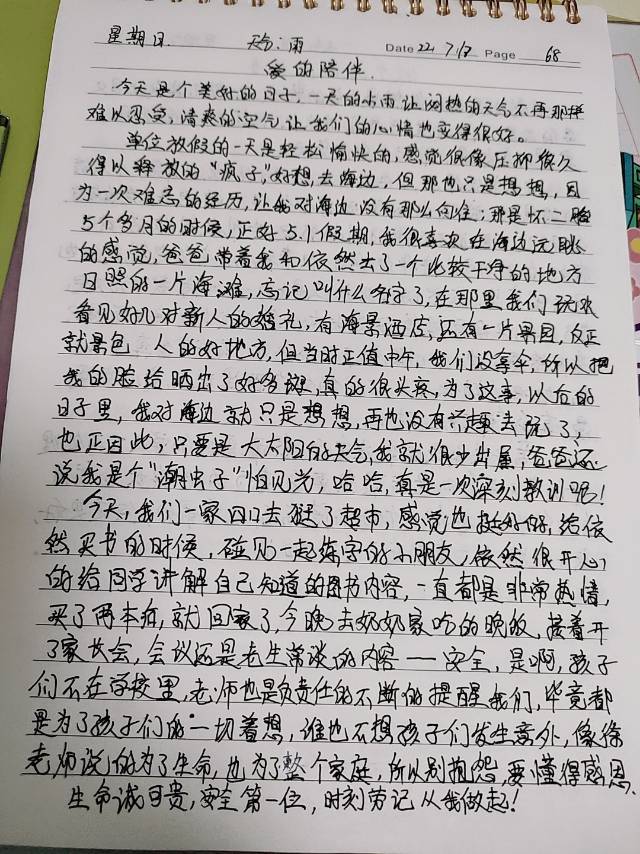 星期日 天气:雨 Date 22 7/17 Page 68
爱的陪伴.
今天是个美好的日子,一天的小雨让闷热的天气不再那样
难以忍受,清爽的空气让我们的心情也变得很好。
单位放假的一天是轻松愉快的,感觉很像压抑很久
得以释放的“疯子”,好想去海边,但那也只是想想,因
为一次难忘的经历,让我对海边没有那么向往;那是怀二胎
5个多月的时候,正好5.1假期,我很喜欢在海边远眺
的感觉,爸爸带着我和依然去了一个比较干净的地方
日照的一片海滩,忘记叫什么名字了,在那里我们玩水
看见好几对新人的婚礼,有海景酒店,还有一片果园,反正
就是包 人的好地方,但当时正值中午,我们没拿伞,所以把
我的脸给晒出了好多斑,真的很头疼,为了这事,以后的
日子里,我对海边就只是想想,再也没有兴趣去玩了,
也正因此,只要是大太阳的天气,我就很少出屋,爸爸还
说我是个“潮虫子”怕见光,哈哈,真是一次深刻教训吧!
今天,我们一家四口去逛了超市,感觉也挺好的,给依
然买书的时候,碰见一起练字的小朋友,依然很开心
的给同学讲解自己知道的图书内容,一直都是非常热情,
买了两本后,就回家了,今晚去奶奶家吃的晚饭,接着开
了家长会,会议还是老生常谈的内容——安全,是啊,孩子
们不在学校里,老师也是负责任的不断的提醒我们,毕竟都
是为了孩子们的一切着想,谁也不想孩子们发生意外,像徐
老师说的为了生命,也为了整个家庭,所以别抱怨,要懂得感恩.
生命诚可贵,安全第一位,时刻劳记从我做起!